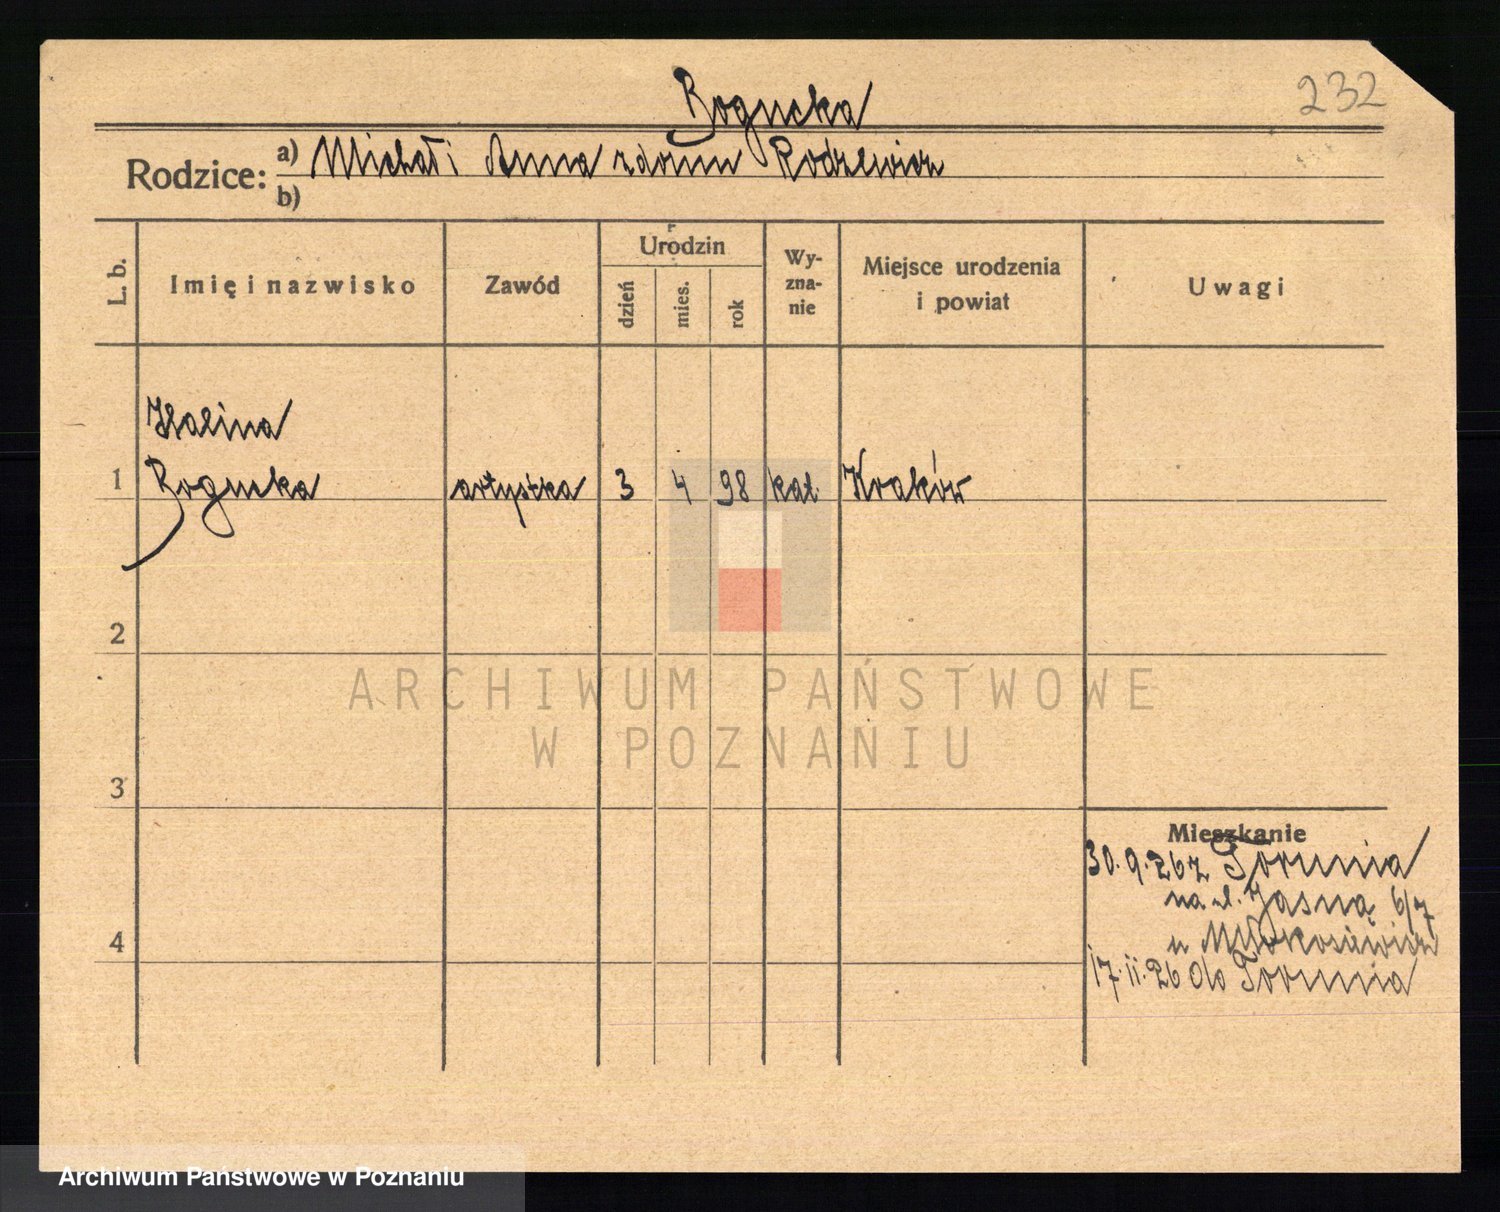 Bogucka
232
Rodzice: a) Michał i Anna z domu Rodziewicz
b)
L. b.
Imię i nazwisko
Zawód
Urodzin
dzień
mies.
rok
Wy-
zna-
nie
Miejsce urodzenia
i powiat
Uwagi
Halina
1 Bogucka artystka 3 4 98 kat. Kraków
2
3
4
Mieszkanie
30.9.26 z Torunia
na ul. Jasną 6/7
u
17.11.26 do Torunia
ARCHIWUM PAŃSTWOWE
W POZNANIU
Archiwum Państwowe w Poznaniu